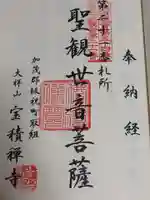 奉納経
第二十一番札所
聖観世音菩薩
加茂郡坂祝町取組
大祥山宝積禅寺